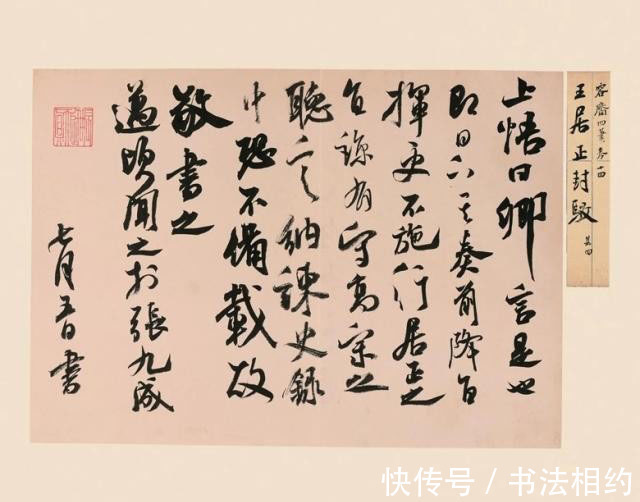 容齋四筆卷十四
王居正封駁 其四
上悟曰卿言是也
即日下其奏前降旨
揮更不施行居正之
直諒有守高宗之
聽言納諫史錄
中恐不備載故
敬書之
邁頃聞之於張九成
七月五日書
快传号 / 书法相约